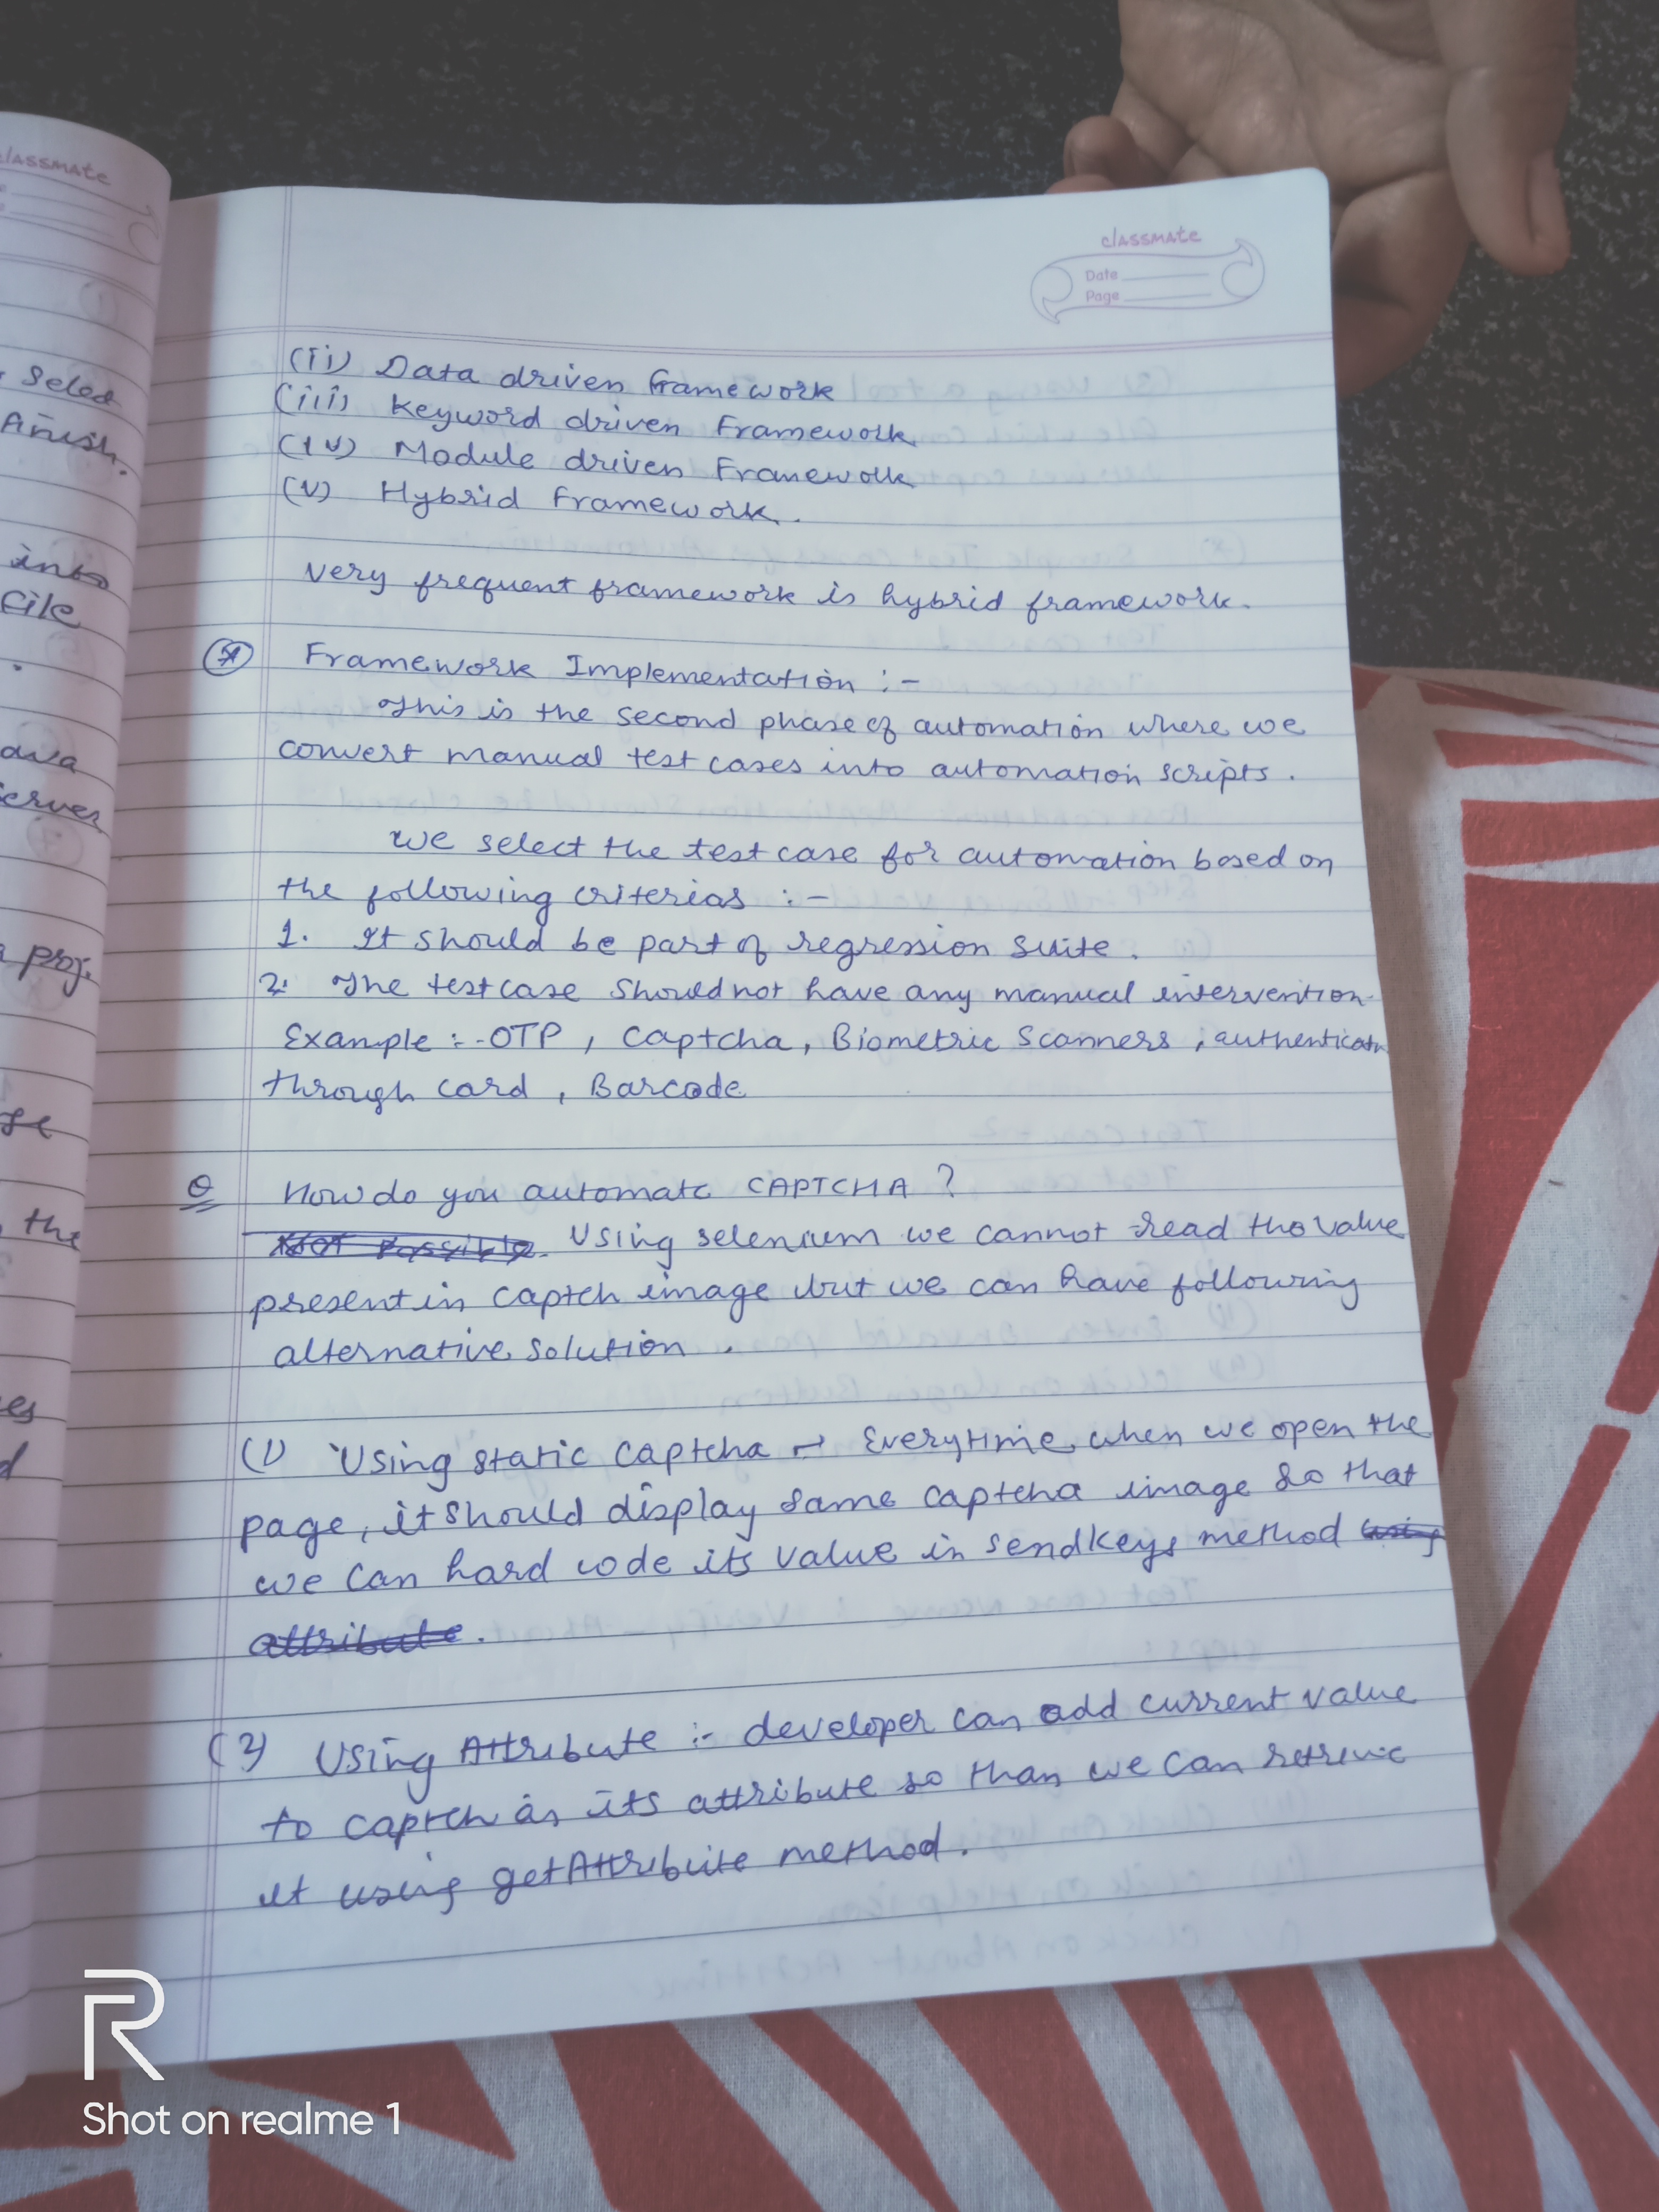 classmate
Date
Page
(ii) Data driven framework
(iii) Keyword driven Framework
(iv) Module driven Framework
(v) Hybrid Framework.
very frequent framework is hybrid framework.
Framework Implementation :-
This is the second phase of automation where we
convert manual test cases into automation scripts.
we select the test case for automation based on
the following criterias :-
1. It should be part of regression suite.
2. The testcase should not have any manual intervention
Example :- OTP, Captcha, Biometric Scanners, authenticatn
through card, Barcode
Q How do you automate CAPTCHA ?
Not Possible. Using selenium we cannot read the value
present in captch image but we can have following
alternative solution.
(1) Using static captcha → Everytime when we open the
page, it should display same captcha image so that
we can hard code its value in sendkeys method using
attribute.
(2) Using Attribute :- developer can add current value
to captch as its attribute so than we can retreive
it using getAttribute method.
classmate
Select
finish.
into
file
ava
server
proj.
the
R
Shot on realme 1